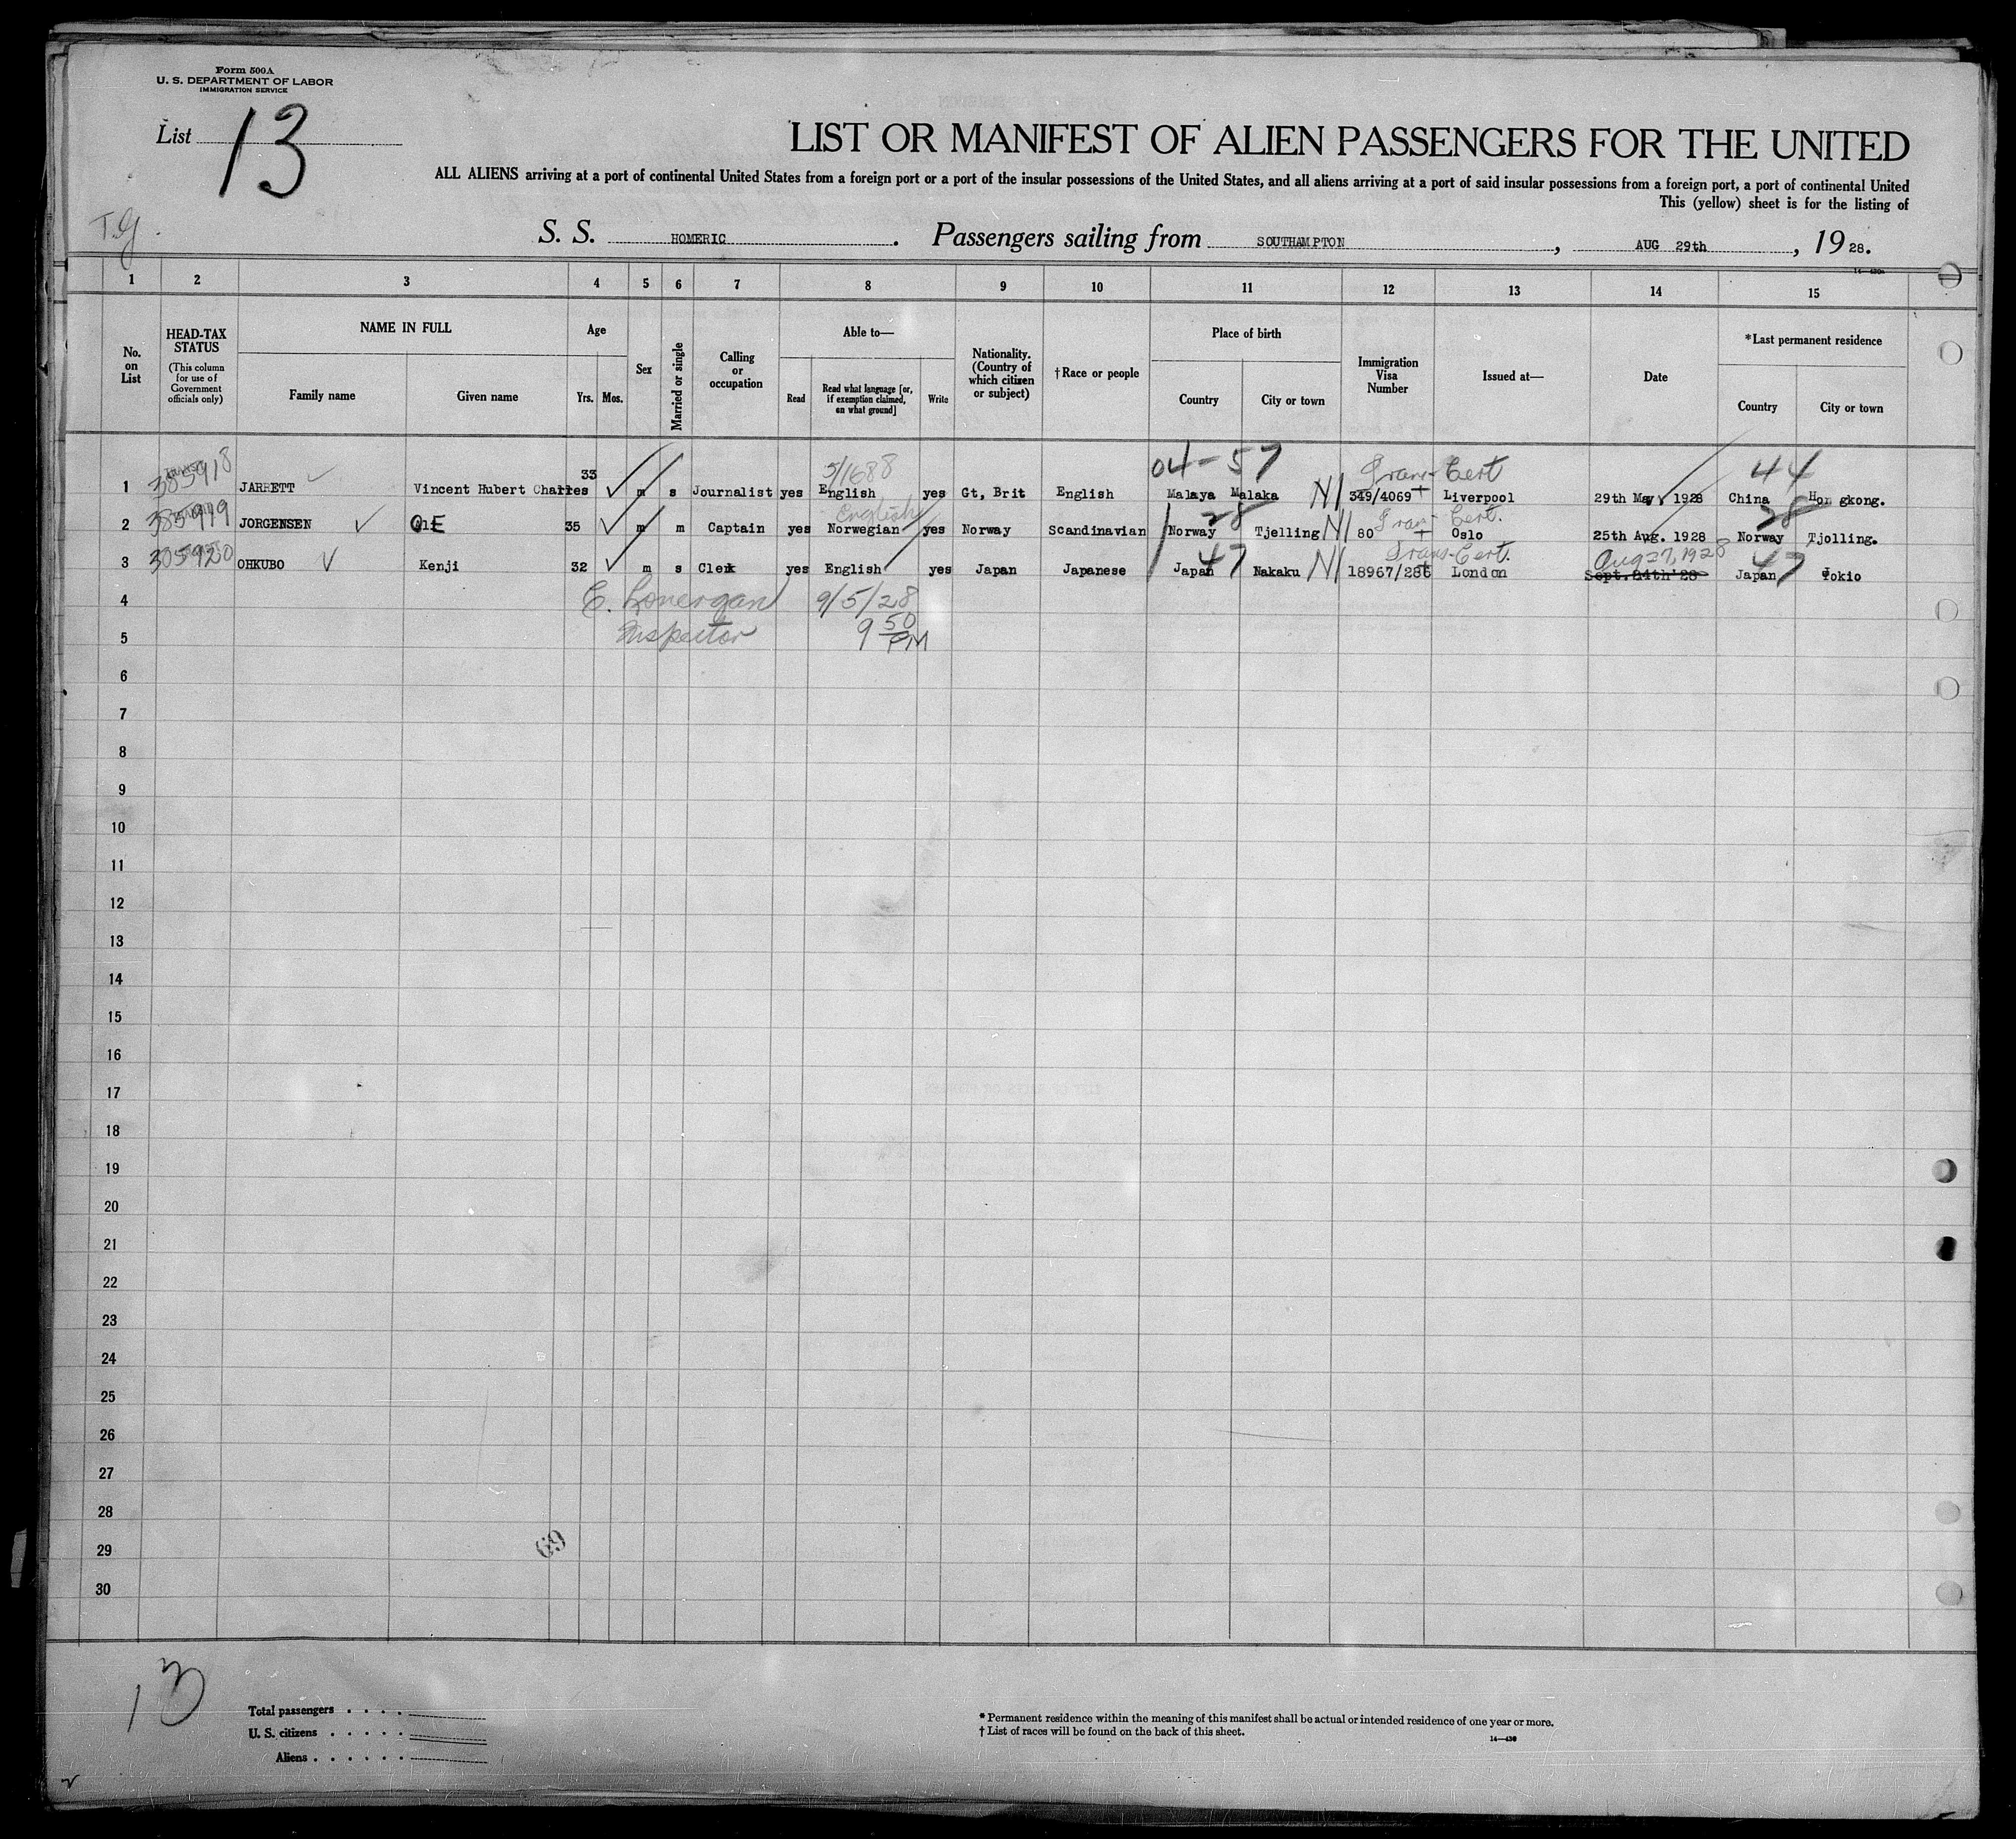 Form 500A
U. S. DEPARTMENT OF LABOR
IMMIGRATION SERVICE
List 13
LIST OR MANIFEST OF ALIEN PASSENGERS FOR THE UNITED
ALL ALIENS arriving at a port of continental United States from a foreign port or a port of the insular possessions of the United States, and all aliens arriving at a port of said insular possessions from a foreign port, a port of continental United
This (yellow) sheet is for the listing of
T.G.
S. S. HOMERIC. Passengers sailing from SOUTHAMPTON, AUG 29th, 19 28.
1 2 3 4 5 6 7 8 9 10 11 12 13 14 15
No. on List
HEAD-TAX STATUS
(This column for use of Government officials only)
NAME IN FULL
Family name
Given name
Age
Yrs. Mos.
Sex
Married or single
Calling or occupation
Able to—
Read
Read what language [or, if exemption claimed, on what ground]
Write
Nationality. (Country of which citizen or subject)
†Race or people
Place of birth
Country
City or town
Immigration Visa Number
Issued at—
Date
*Last permanent residence
Country
City or town
5/1688 04-57 Trans-Cert 44
1 385918 JARRETT Vincent Hubert Charles 33 m s Journalist yes English yes Gt, Brit English Malaya Malaka N 349/4069 Liverpool 29th May 1928 China Hongkong.
English 28 Tran- Cert. 28
2 385919 JORGENSEN OlE 35 m m Captain yes Norwegian yes Norway Scandinavian Norway Tjelling N 80 Oslo 25th Aug. 1928 Norway Tjolling.
47 Trans-Cert. Aug 27, 1928 47
3 385920 OHKUBO Kenji 32 m s Clerk yes English yes Japan Japanese Japan Nakaku N 18967/286 London Sept. 24th'28 Japan Tokio
4 E. Lonergan 9/5/28
5 Inspector 9 50 PM
6
7
8
9
10
11
12
13
14
15
16
17
18
19
20
21
22
23
24
25
26
27
28
29 69
30
13
Total passengers
U. S. citizens
Aliens
* Permanent residence within the meaning of this manifest shall be actual or intended residence of one year or more.
† List of races will be found on the back of this sheet.
14—430